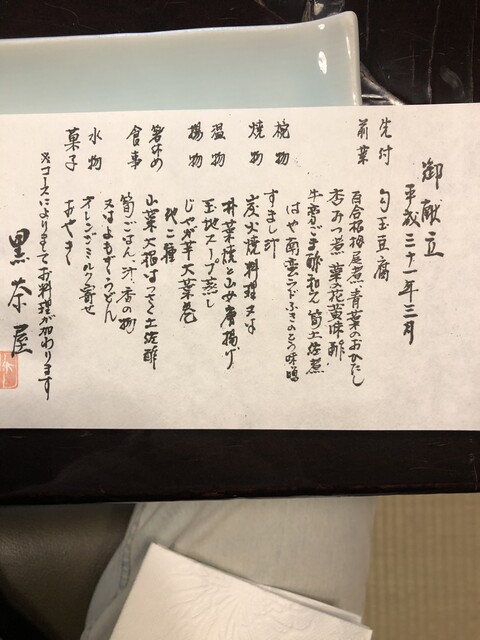 御献立
平成三十一年三月
先付 勾玉豆腐
前菜 百合根梅尾煮 青菜のおひたし
杏みつ煮 菜の花黄味酢
牛蒡ごま酢和え 筍土佐煮
はや南蛮 ふきのとう味噌
椀物 すまし汁
焼物 炭火焼料理又は
朴葉焼と山女唐揚げ
温物 玉地スープ蒸し
揚物 じゃが芋大葉巻
他二種
箸休め 山菜大根はっさく土佐酢
食事 筍ごはん、汁、香の物
又はよもぎうどん
水物 オレンジミルク寄せ
菓子 おやき
※コースによりましてお料理が加わります
黒茶屋